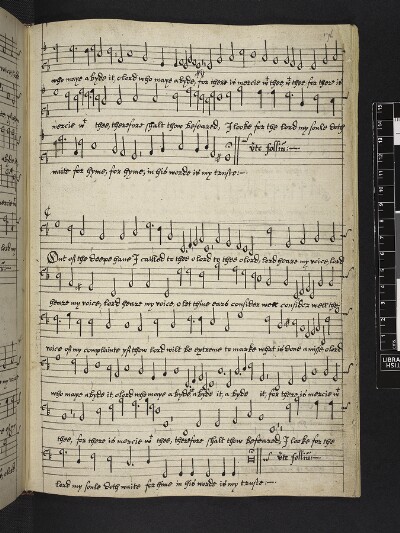 who maye abyde it, o lord who maye abyde, for there is mercie wt thee, wt thee for there is
mercie wt thee, therefore shalt thow be feared, I looke for the lord my soule doth
waite for hyme, for hyme, in his worde is my truste:—
Out of the deepe haue I called to thee o lord to thee o lord, lord heare my voice, lord
heare my voice, lord heare my voice, o let thine ears consider well consider well the
voice of my complainte yf thow lord wilt be extreme to marke what is done amisse o lord
who maye abyde it o lord who maye abyde, abyde it, abyde it, for there is mercie wt
thee, for there is mercie wt thee, therefore shalt thow be feared, I looke for the
lord my soule doth waite for hime in his worde is my truste:—
LIBRA